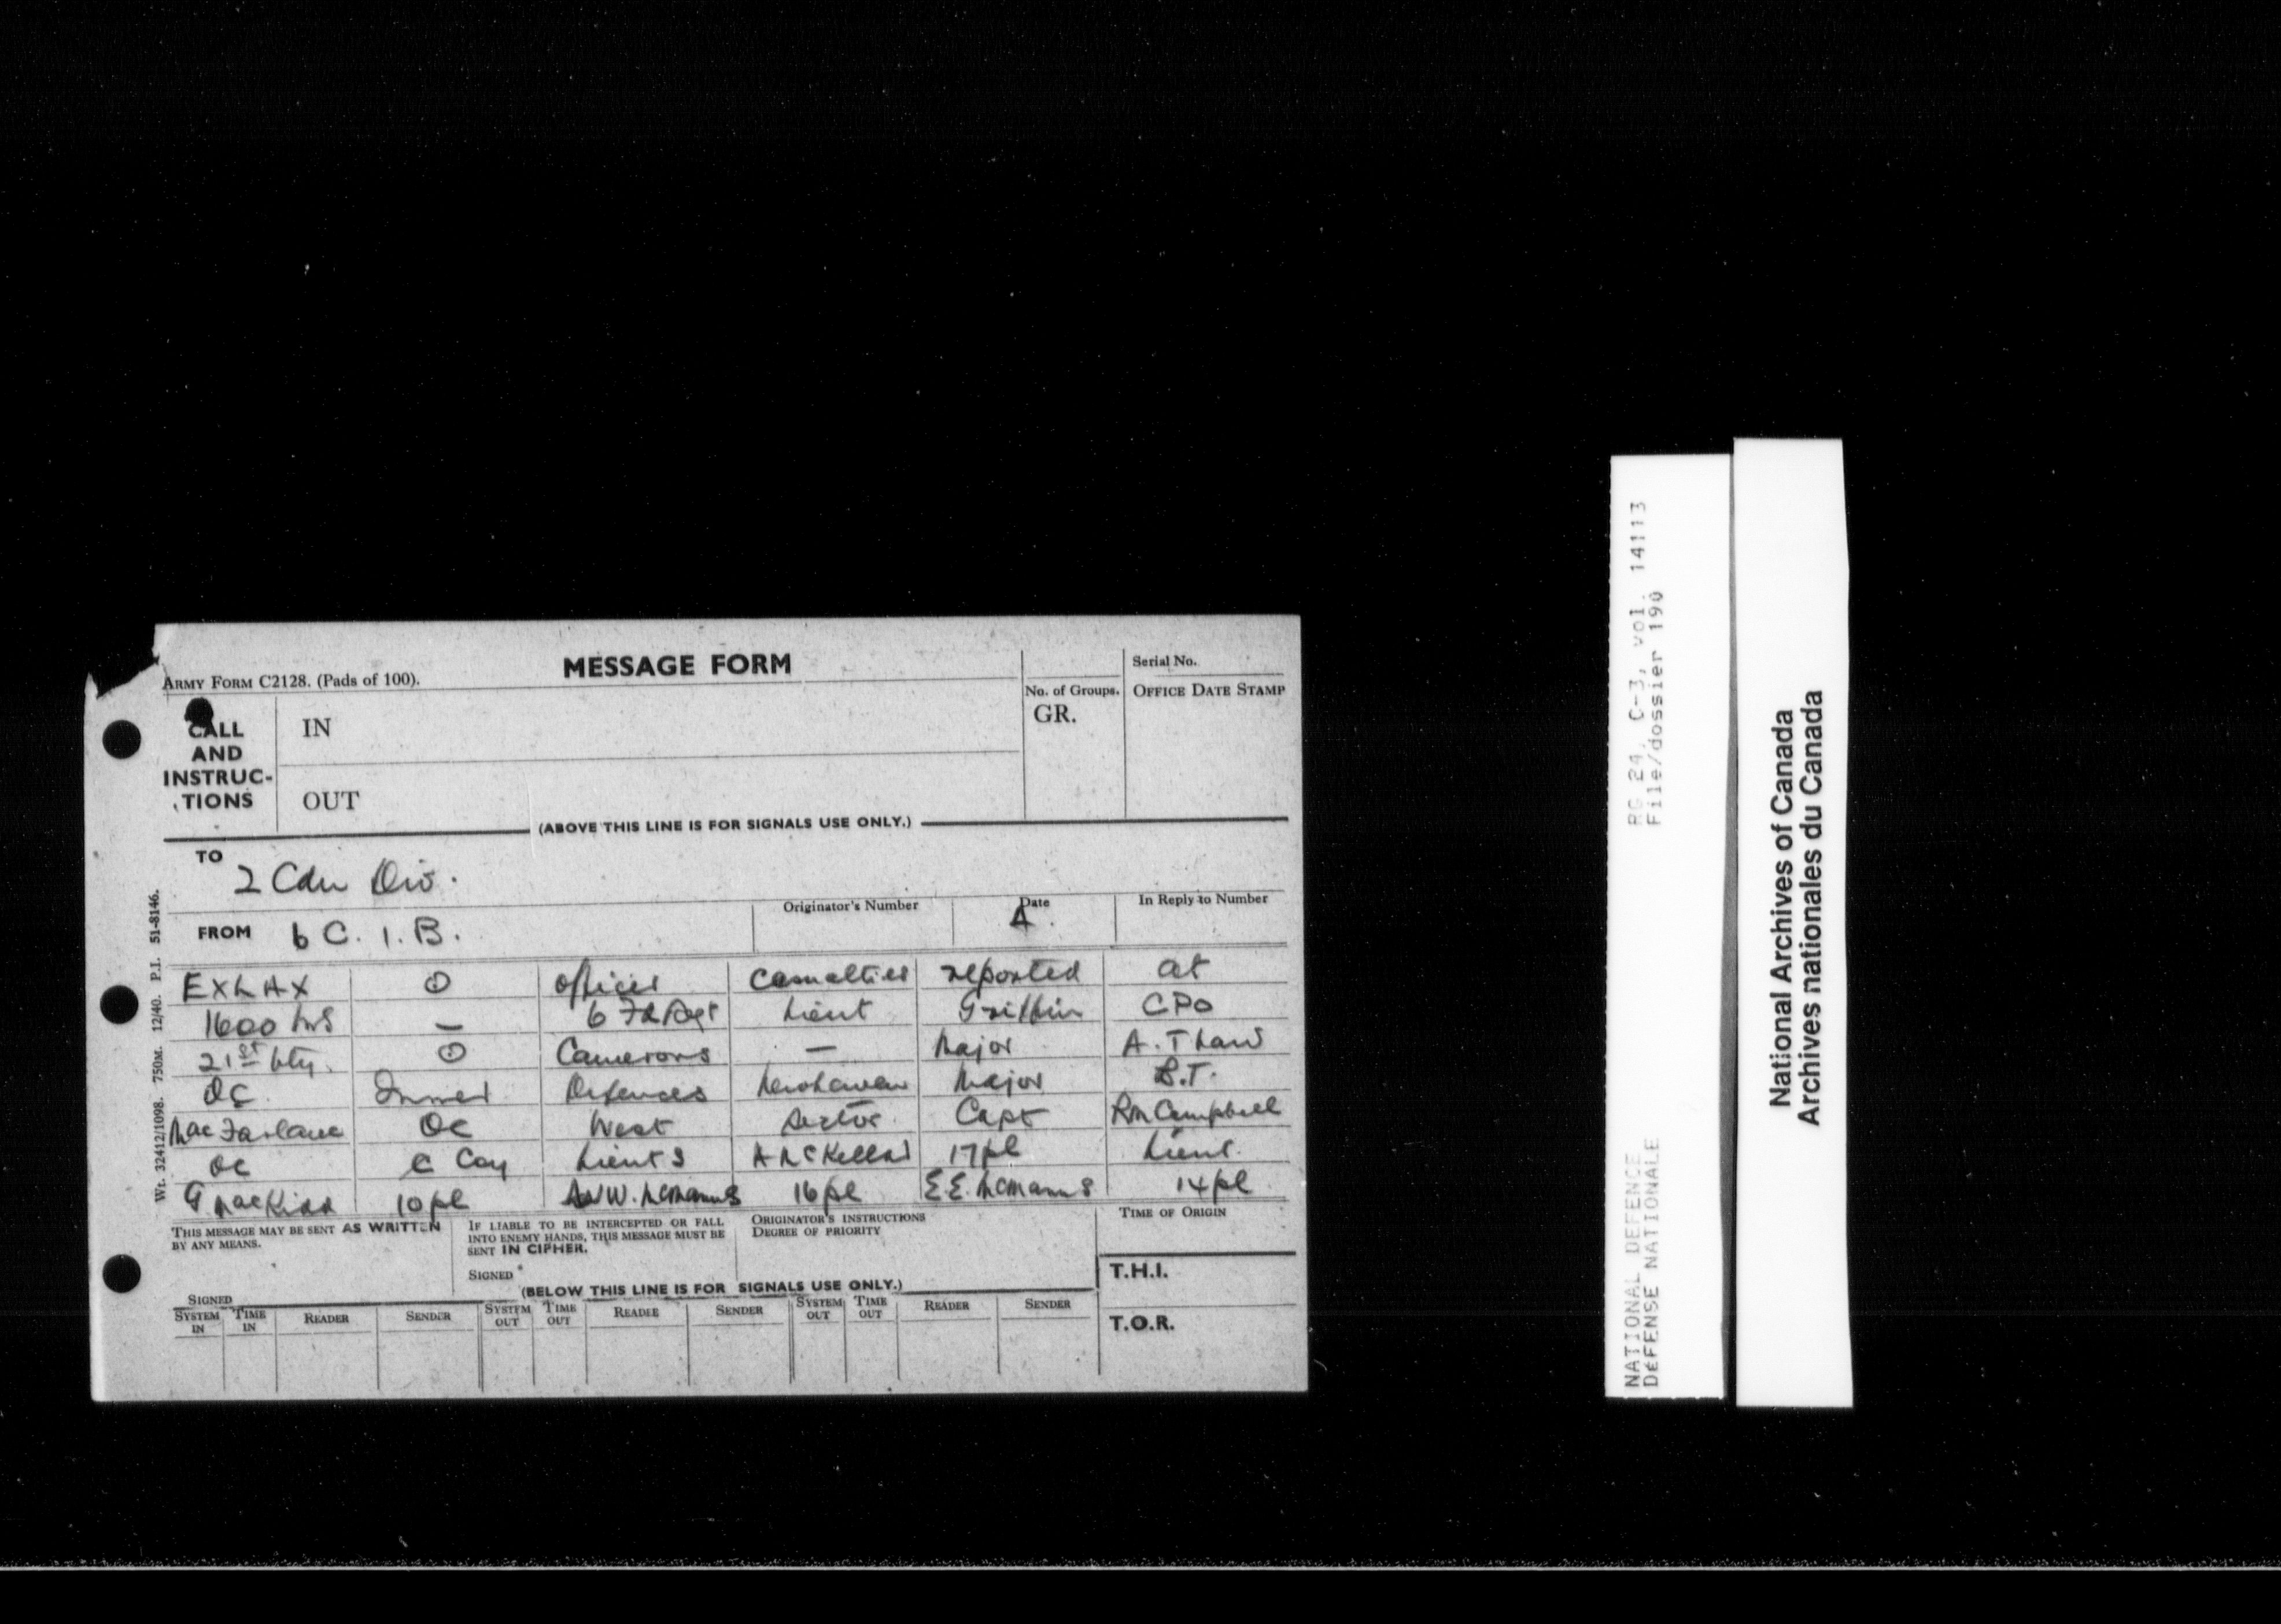 MESSAGE FORM
ARMY FORM C2128. (Pads of 100).
Serial No.
No. of Groups.
GR.
OFFICE DATE STAMP
CALL AND INSTRUC-TIONS
IN
OUT
(ABOVE THIS LINE IS FOR SIGNALS USE ONLY.)
TO
2 Cdn Div.
Originator's Number
Date
In Reply to Number
FROM 6 C. I. B.
4.
EXLAX ⊙ officer casualties reported at
1600 hrs — 6 Fd Regt Lieut Griffin CPO
21st bty. ⊙ Camerons — Major A. T Law
OC Inner Defences Newhaven Major R.T.
MacFarlane OC West Sector Capt RM Campbell
OC C Coy Lieuts A McKellar 17 pl Lieut.
G MacKidd 10 pl W. McManus 16 pl E E. McManus 14 pl
THIS MESSAGE MAY BE SENT AS WRITTEN BY ANY MEANS.
SIGNED
IF LIABLE TO BE INTERCEPTED OR FALL INTO ENEMY HANDS, THIS MESSAGE MUST BE SENT IN CIPHER.
SIGNED
ORIGINATOR'S INSTRUCTIONS
DEGREE OF PRIORITY
TIME OF ORIGIN
(BELOW THIS LINE IS FOR SIGNALS USE ONLY.)
T.H.I.
SYSTEM IN TIME IN READER SENDER SYSTEM OUT TIME OUT READER SENDER SYSTEM OUT TIME OUT READER SENDER
T.O.R.
Wt. 32412/1098. 750M. 12/40. P.I. 51-8146.
NATIONAL DEFENCE RG 24, C-3, vol. 14113
DéFENSE NATIONALE File/dossier 190
National Archives of Canada
Archives nationales du Canada